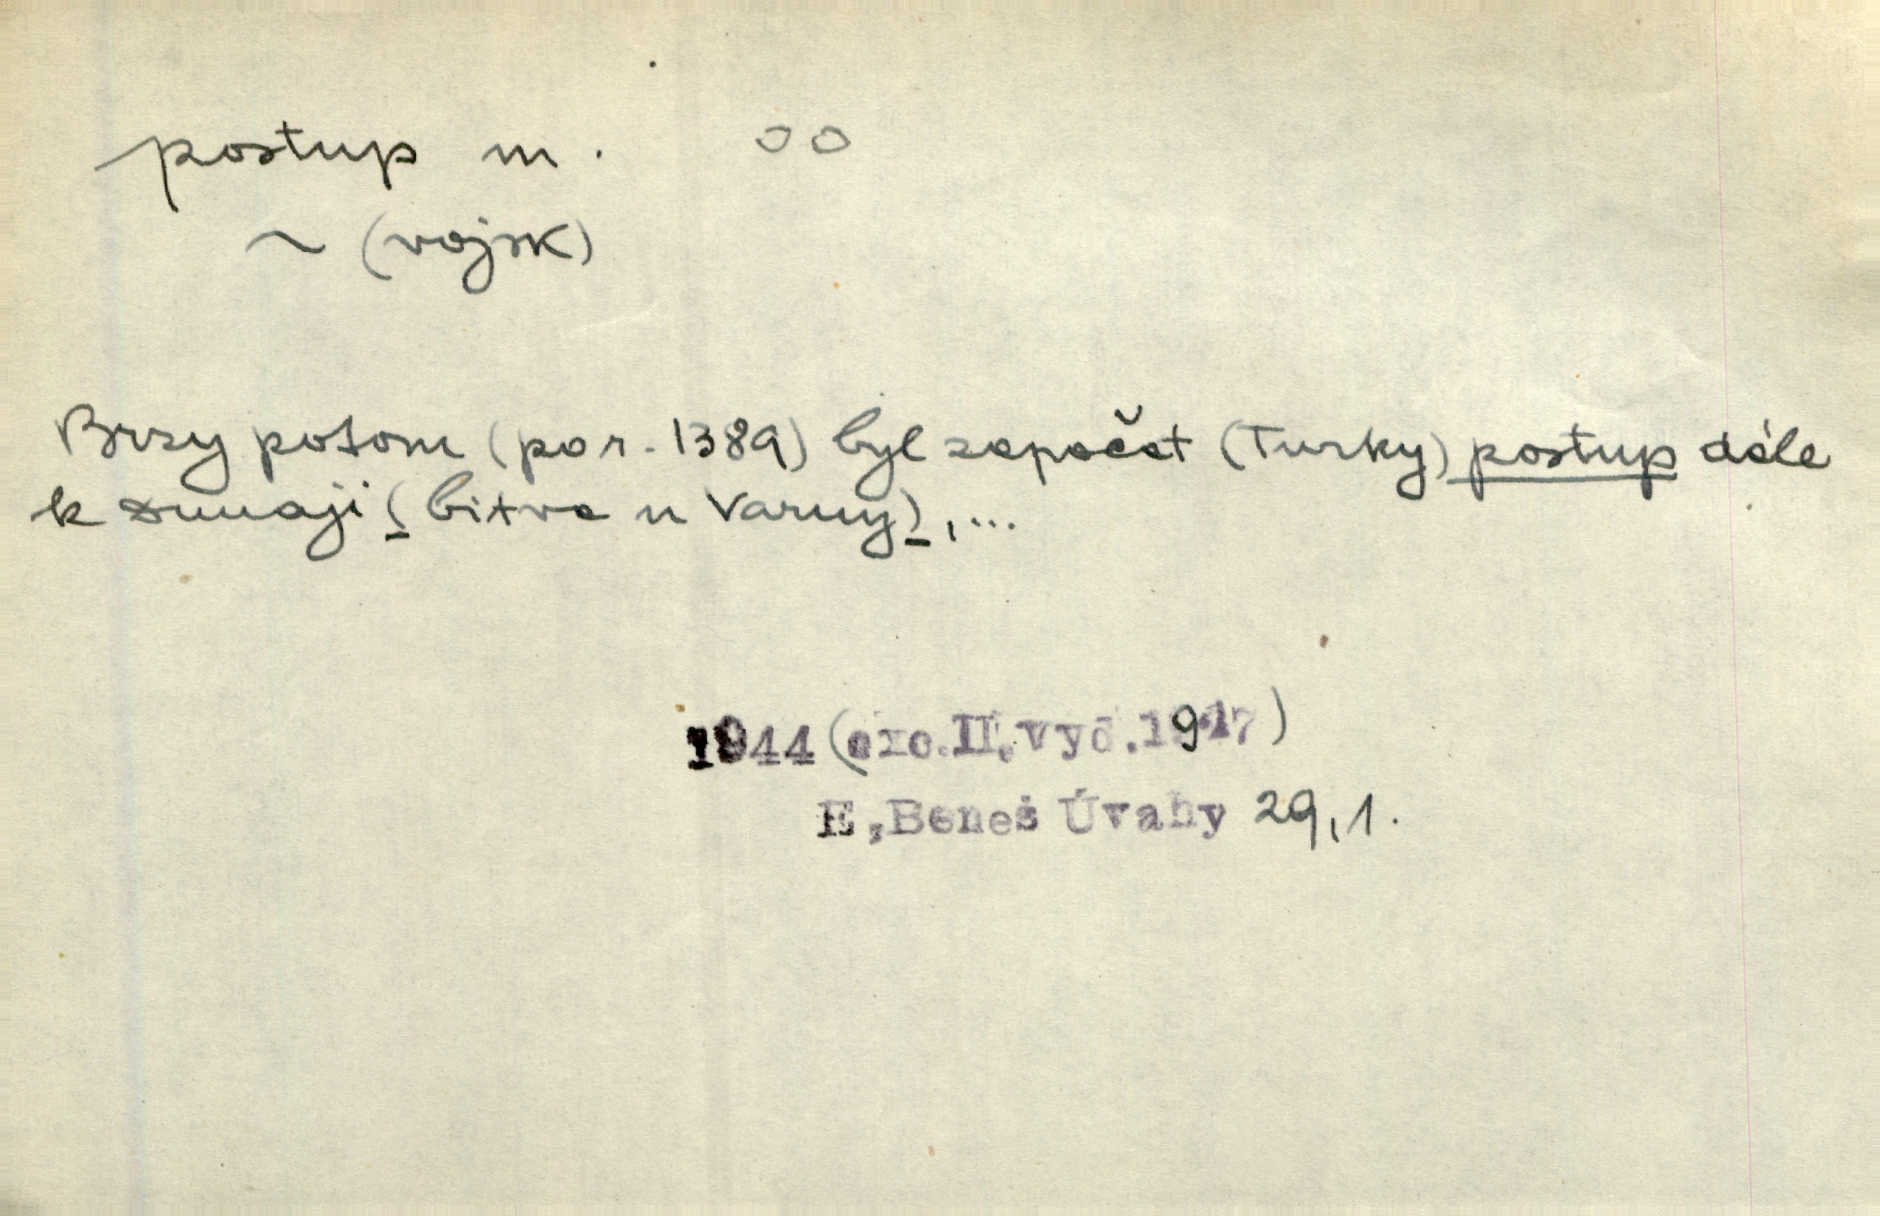 postup m. oo
~ (vojsk)
Brzy potom (po r. 1389) byl započat (Turky) postup dále
k Dunaji (bitva u Varny),...
1944 (exc.II.vyd.1947)
E.Beneš Úvahy 29,1.